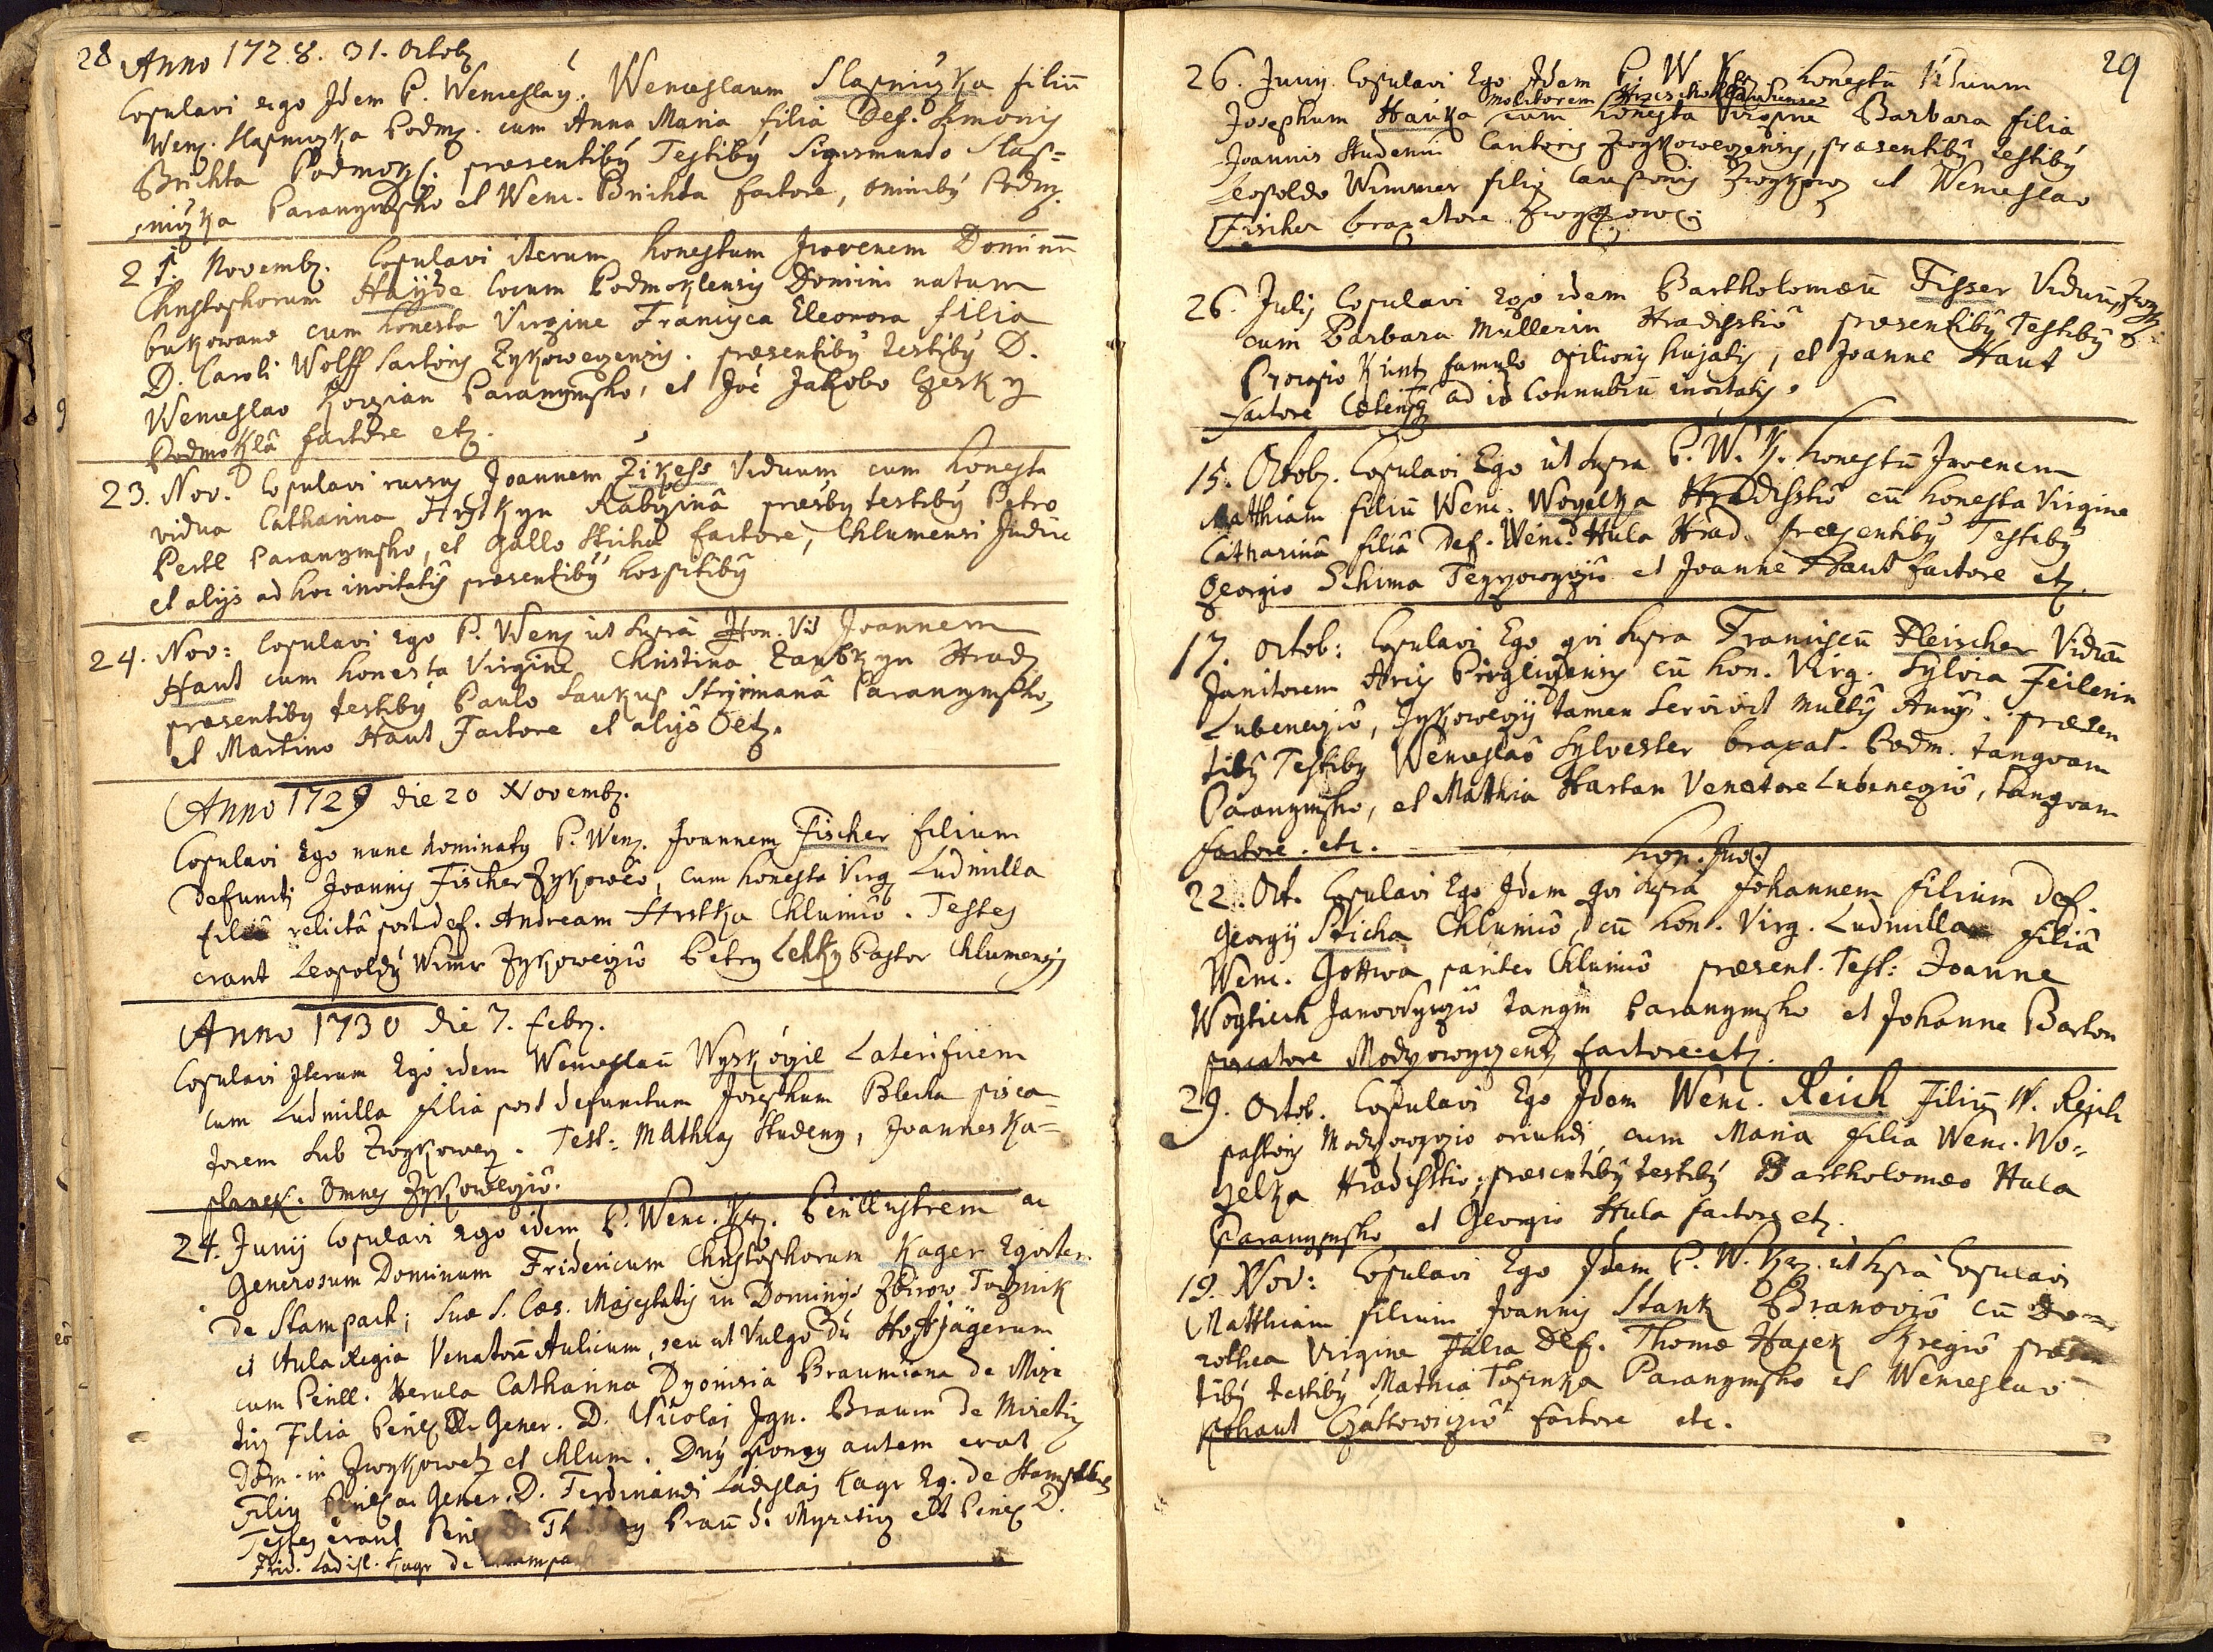 28 Anno 1728. 31. Octob
Copulavi ego Idem P. Wenceslaus. Wenceslaum Slapniczka filiū
Wenz. Slapniczka Podmz. cum Anna Maria filia Def. Simonis
Brichta Podmokl. præsentibus Testibus Sigismundo Slap=
niczka Paranympho et Wenc. Brichta factore, omnibus Podm.
21. Novemb. Copulavi iterum honestum Juvenem Dominū
Christophorum Hayde Podmoklensis Domini natum
bukowano cum honesta Virgine Francisca Eleonora filia
D. Caroli Wolff Sartoris Zykowezensis. præsentibus testibus D.
Wenceslao Paranympho, et Joē Jakobo Czerky
Podmoklâ factore etz.
23. Nov. Copulavi rursus Joannem Zikess Viduum cum honesta
vidua Catharina præsbus testibus Petro
Pertl Paranympho, et Gallo Sticha factore, Chlumensi Judice
et alijs ad hoc invitatis præsentibus hospitibus
24. Nov: Copulavi Ego P. Wenz ut supra Hon. Vid Joannem
Haut cum honesta Virgine Christina Hradz
præsentibus testibus Paulo Saukup Paranympho,
et Martino Haut Factore et alijs etz.
Anno 1729 die 20 Novemb.
Copulavi Ego nunc nominatus P. Wenz. Joannem Fischer filium
Defuncti Joannis Fischer Zykoweō, cum honesta Virg Ludmilla
filiâ relictâ post def. Andream Hrstka Chlumiô. Testes
erant Leopoldus Wimr Zykowezio Petrus Lehky Pastor Chlumensis
Anno 1730 die 7. feb.
Copulavi Iterum Ego idem Wenceslaū Wyskoczil Laterificem
cum Ludmilla filia post defunctum Josephum Blecha pisca=
torem sub Zwykowez. Test: Mathias Studeny, Joannes Ka=
planek. Omnes Zykowezio.
24. Junij Copulavi Ego idem P. Wenc. Kz. Perillustrem ac
Generosum Dominum Fridericum Christophorum Kager Equitem
de Stampach; Suæ S. Cæs. Majestatis in Dominijs Zbirow Toczník
et Aula Regia Venatorē Aulicum, seu ut Vulgo Dū Hoffjägerum
cum Perill. Herula Catharina Dyonisia Braumiana de Mire
titz Filia Perill ac Gener. D. Nicolai Ign. Braum de Miretitz
Dom. in Zwykowetz et Chlum. Dnus sponsus autem erat
Filius Perill ac Gener. D. Ferdinandi Ladislai Kagr Eq. de Stampach
Testes erant Braū de Myretitz et Perill D.
Frid. Ladisl. Kagr de Stampach
29
26. Junij Copulavi Ego Idem P. W. K. honestū Viduum
molitorem
Josephum Hauka cum honesta Virgine Barbara filia
Joannis Studenii Cantoris Zwykowezensis, præsentibus testibus
Leopoldo Wimmer filio Zwykowz et Wenceslao
Fischer braxatore Zwykowc.
26. Julij Copulavi ego idem Bartholomæū Fisser Viduū Zwyk
cum Barbara Mullerin Hradisstiô præsentibus Testibus
Procopio Kuntz famulo opilionis hujatis, et Joanne Haut
factore Cæterisq ad id Connubiū invitatis.
15. Octob. Copulavi Ego ut supra P. W. K. honestū Juvenem
Matthiam filiū Wenc. Wogelka Hradisstiô cū honesta Virgine
Catharinâ filiâ Def. Wenc. Hula Hrad. præsentibus Testibus
Georgio Schima et Joanne Haut factore etz.
17. Octob: Copulavi Ego qui supra Franciscū Fleischer Viduū
Janitorem Arcis Pirglizensis cū hon. Virg. Sylvia Feilerin
Lubenezio, Zykowezij tamen servivit multis Annis. præsen
tibus Testibus Wenceslao Sylvester braxat. Podm. tanquam
Paranympho, et Mathia Hartan Venatore Lubenezio, tanquam
factore etc.
hon. Juv.
22. Oct. Copulavi Ego Idem qui supra Johannem filium def.
Georgij Sticha Chlumiô, cū hon. Virg. Ludmilla filiâ
Wenc. Gottwa pariter Chlumiô præsent. Test: Joanne
Wogtiech tanqm Paranympho et Johanne Barton
piscatore factore etz.
29. Octob. Copulavi Ego Idem Wenc. Reich filiū W. Rejch
pastoris oriundi, cum Maria filia Wenc. Wo=
gelka Hradisstio, præsentibus testibus Bartholomæo Hula
Paranympho et Georgio Hula factore etz.
19. Nov: Copulavi Ego Idem P. W. Kz. ut supra Copulavi
Matthiam filium Joannis Stank Branoviô cū Do=
rothea Virgine filia Def. Thomæ Hajek Skregiô præsen
tibus testibus Mathia Tosinka Paranympho et Wenceslao
Kohaut factore etc.